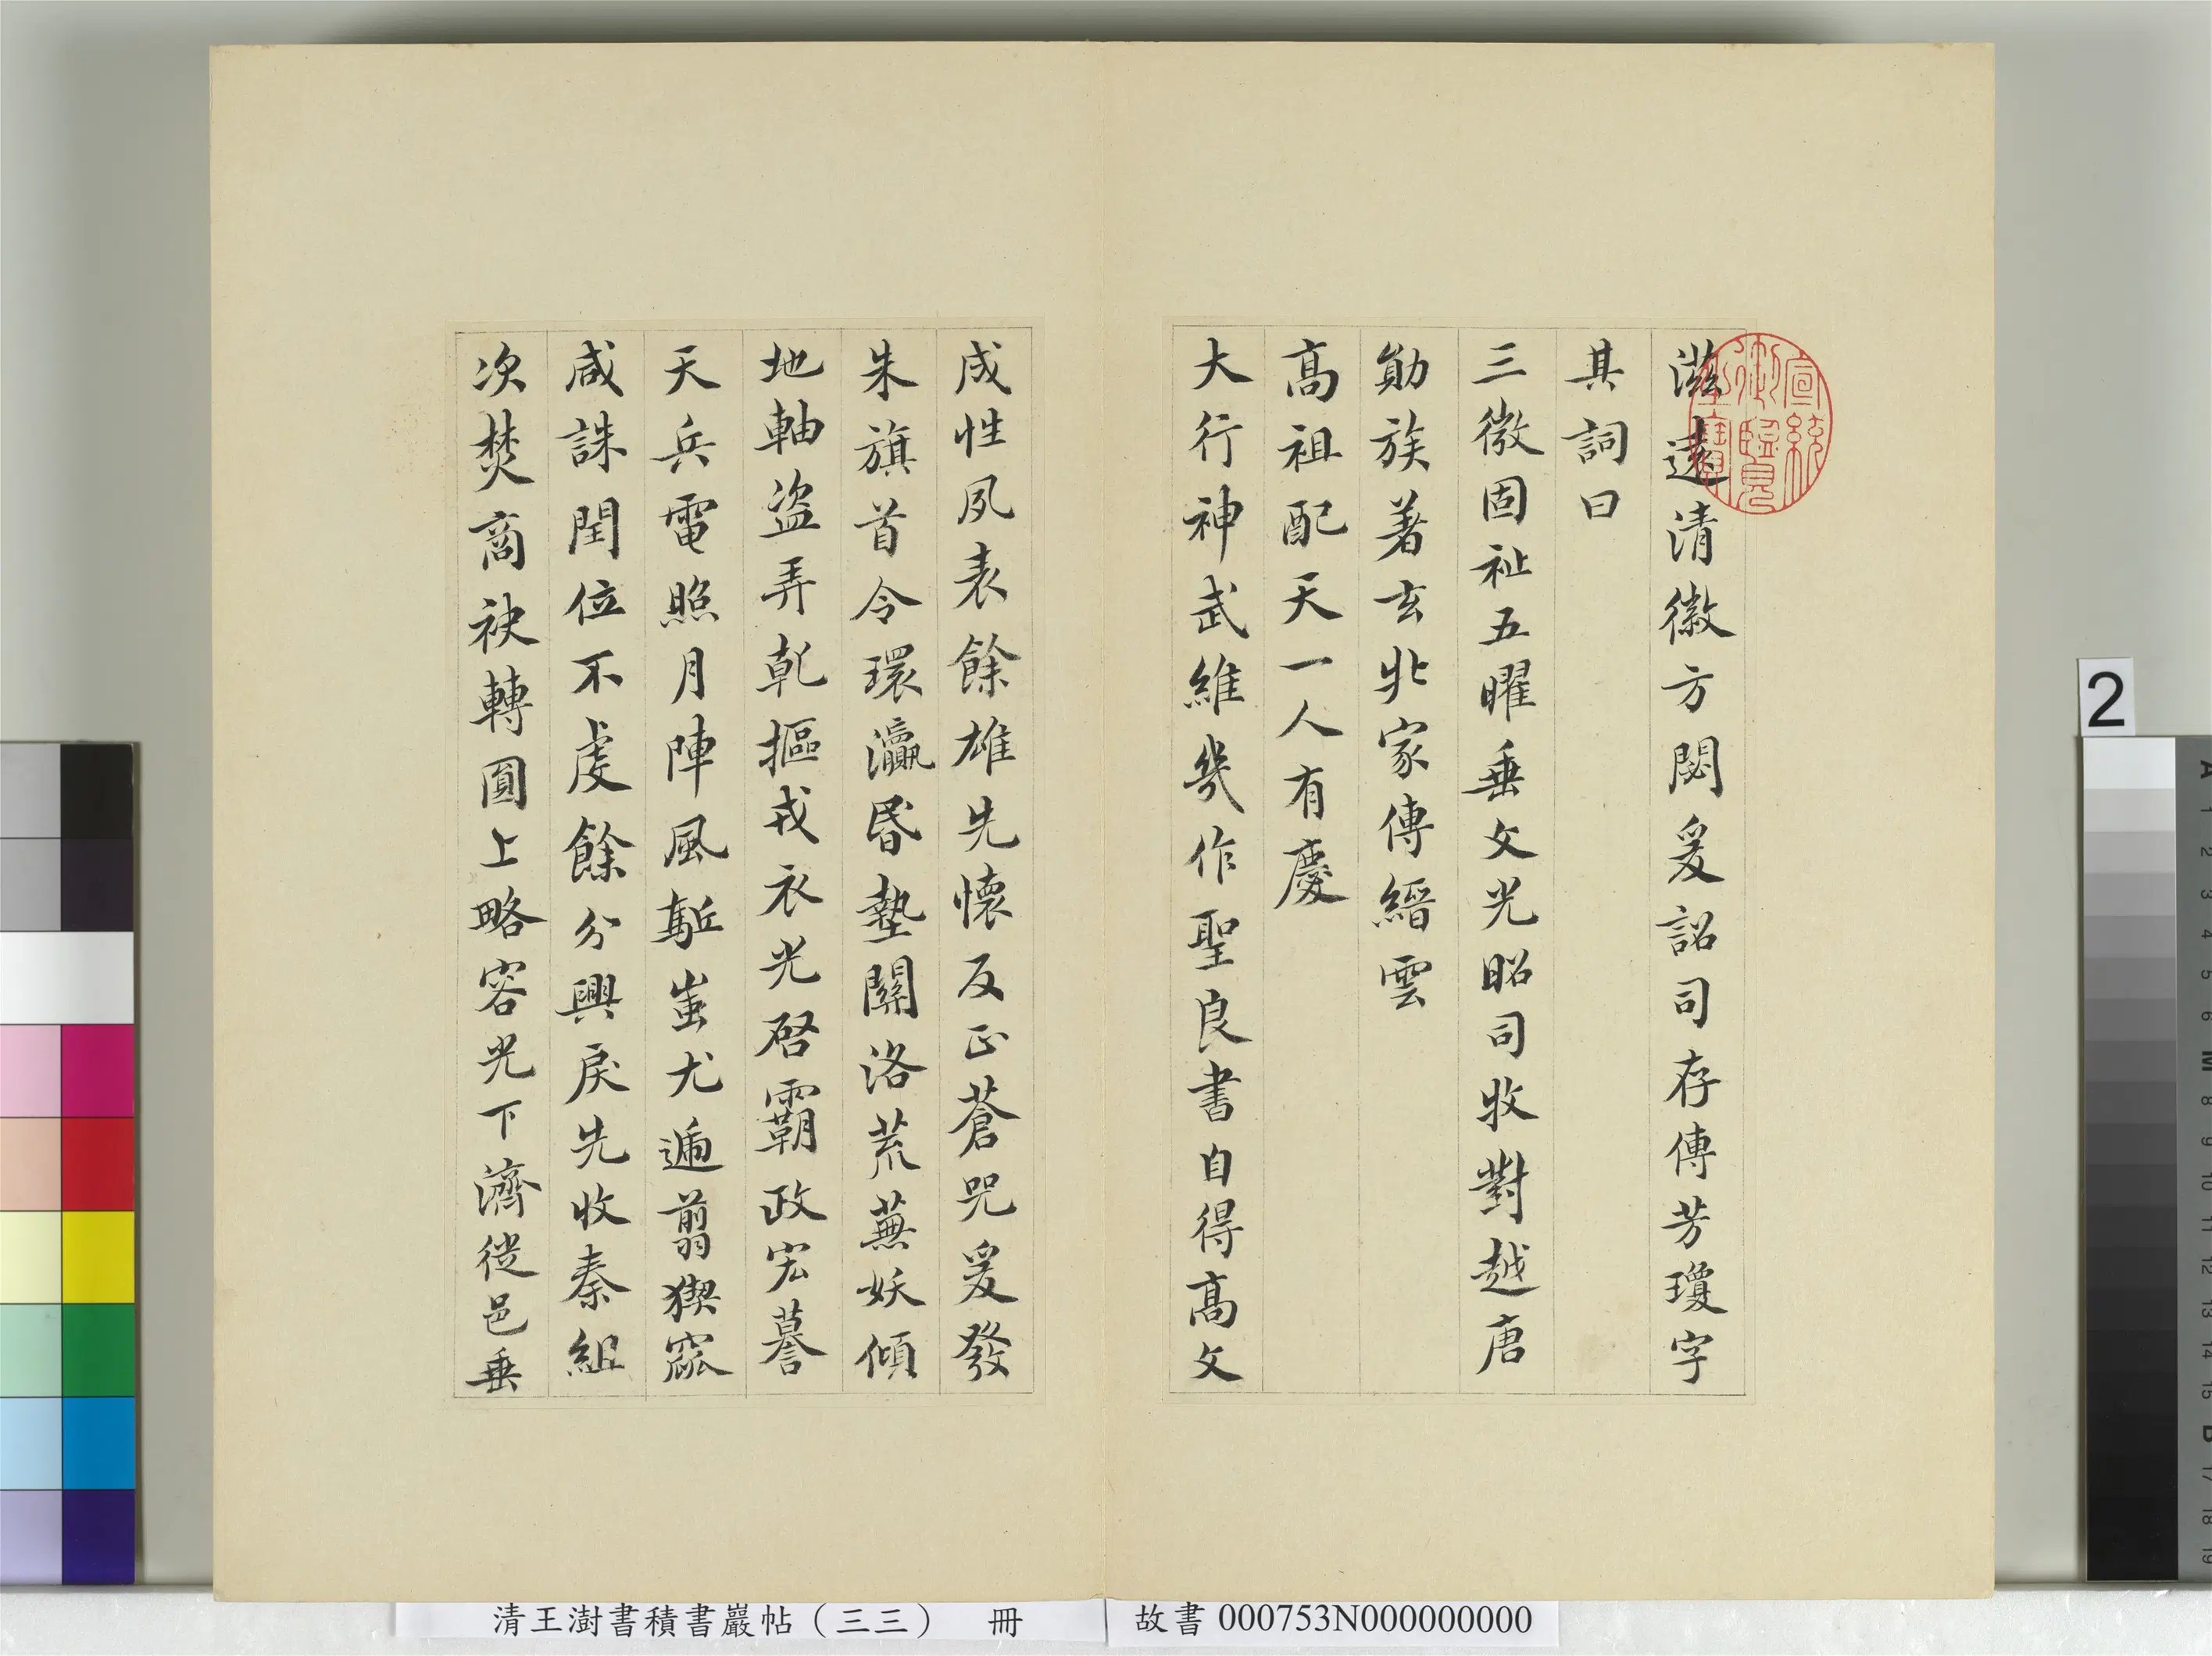 滋遠清徽方閟爰詔司存傳芳瓊字
其詞曰
三微固祉五曜垂文光昭司牧對越唐
勛族著玄丠家傳縉雲
高祖配天一人有慶
大行神武維幾作聖良書自得高文
成性夙表餘雄先懷反正蒼兕爰發
朱旗首令環瀛昬墊關洛荒蕪妖傾
地軸盜弄乾摳戎衣光啓霸政宏謩
天兵電照月陣風駈蚩尤遍翦猰窳
咸誅閏位不虔餘分興戾先收秦組
次焚商袂轉圓上略容光下濟從邑垂
宣統御覽之寶
清王澍書積書巖帖（三三） 冊
故書 000753N000000000
2
A 1 2 3 4 5 6 M 8 9 10 11 12 13 14 15 B 17 18 19